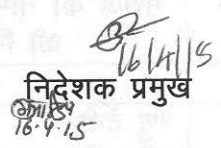 16/4/15
निदेशक प्रमुख
16.4.15